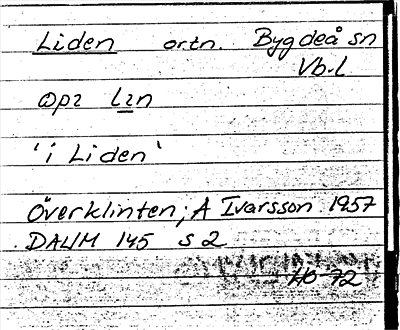 Liden ortn. Bygdeå sn
Vb-l
'i Liden'
Överklinten; A Ivarsson 1957
DAUM 145 s 2
HO 72